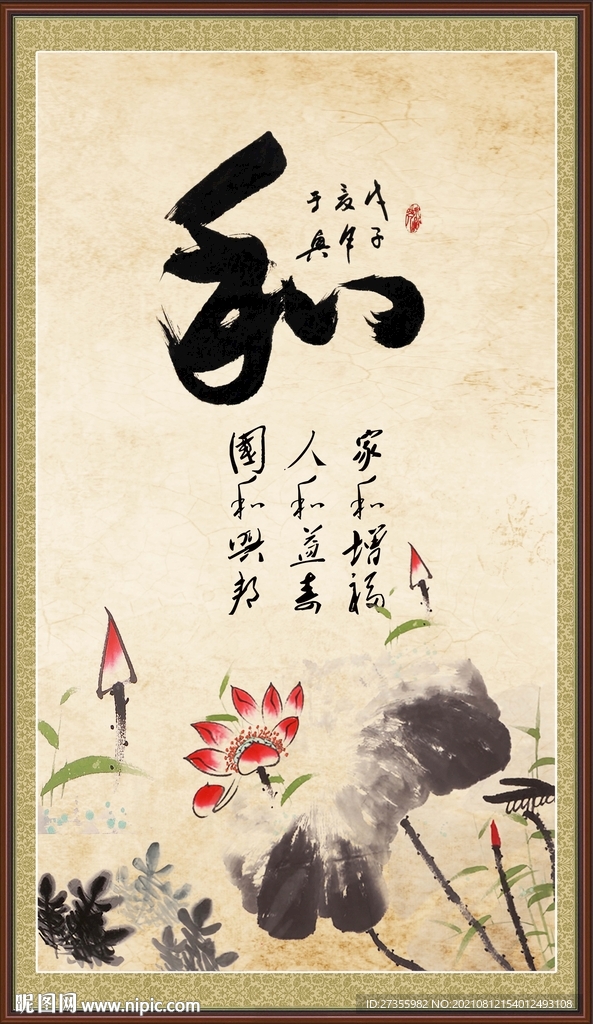 和
戊子
夏年
于奥
家和增福
人和益寿
國和興邦
昵图网 www.nipic.com
ID:27355982 NO:20210812154012493108